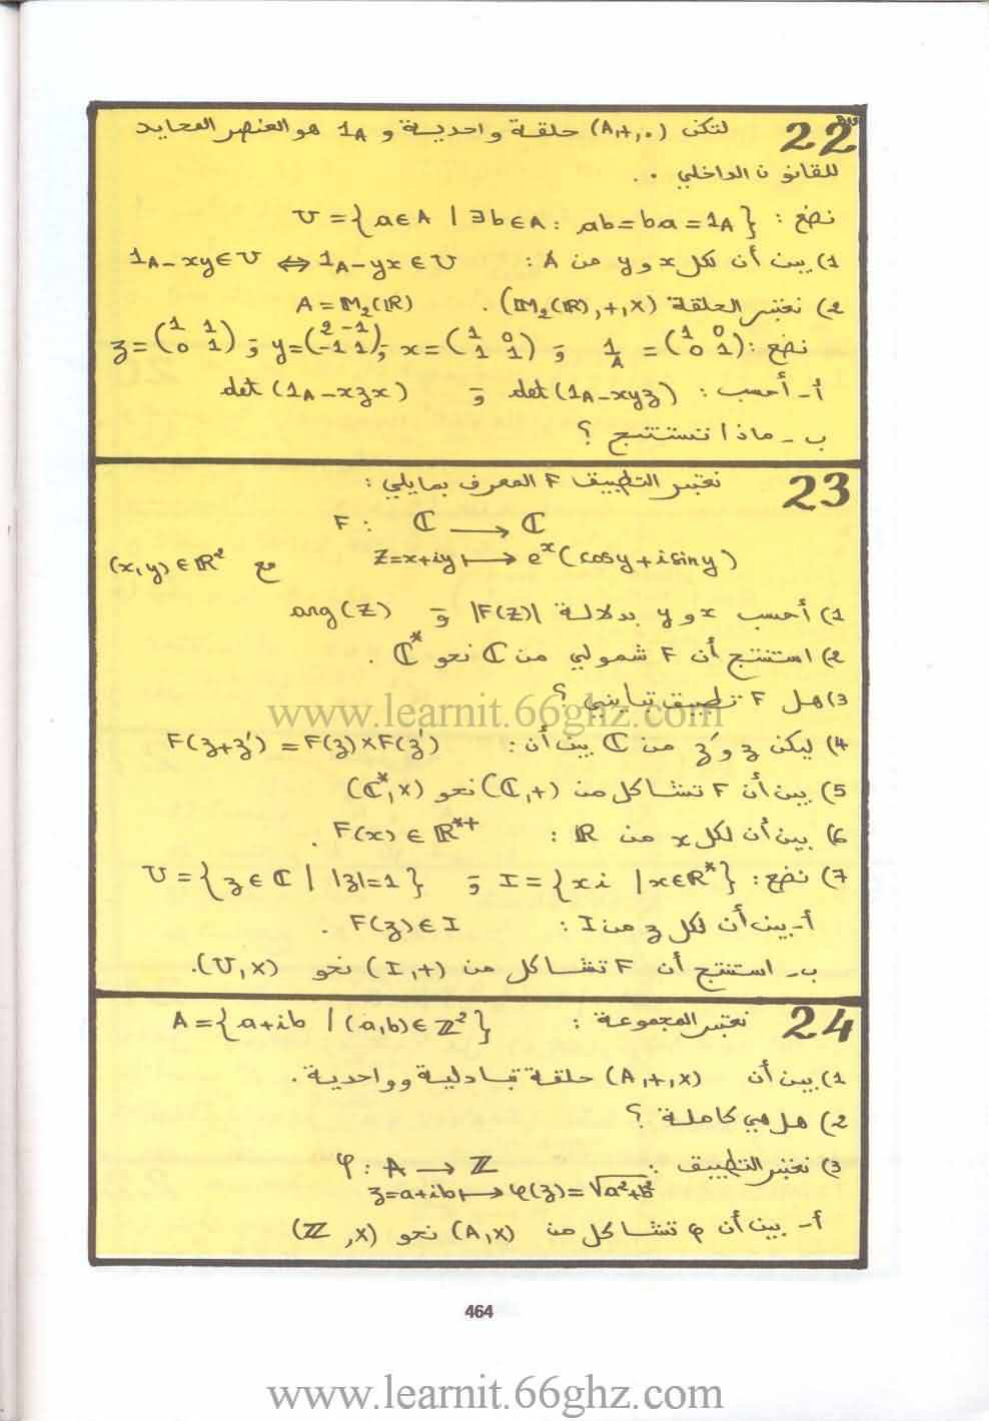 22 لتكن (A,+,•) حلقة واحدية و 1A هو العنصر المحايد
للقانون الداخلي • .
نضع : U = {a∈A | ∃b∈A : ab=ba=1A}
1) بين أن لكل x و y من A : 1A-xy∈U ⇔ 1A-yx∈U
2) نعتبر الحلقة (M₂(ℝ),+,×) . A = M₂(ℝ)
نضع : 1A = (1 0 / 0 1) ; x = (1 0 / 1 1) ; y = (2 -1 / -1 1) ; z = (1 1 / 0 1)
أ- أحسب : det(1A-xyz) و det(1A-xzx)
ب - ماذا تستنتج ؟
23 نعتبر التطبيق F المعرف بمايلي :
F : ℂ → ℂ
z=x+iy ↦ eˣ(cosy+isiny) مع (x,y)∈ℝ²
1) أحسب x و y بدلالة |F(z)| و arg(z)
2) استنتج أن F شمولي من ℂ نحو ℂ* .
3) هل F تطبيق تبايني ؟
4) ليكن z و z' من ℂ بين أن : F(z+z') = F(z)×F(z')
5) بين أن F تشاكل من (ℂ,+) نحو (ℂ*,×)
6) بين أن لكل x من ℝ : F(x) ∈ ℝ*⁺ .
7) نضع : I = {xi | x∈ℝ*} و U = {z∈ℂ | |z|=1}
أ- بين أن لكل z من I : F(z)∈I .
ب- استنتج أن F تشاكل من (I,+) نحو (U,×).
24 نعتبر المجموعة : A = {a+ib | (a,b)∈ℤ²}
1) بين أن (A,+,×) حلقة تبادلية وواحدية .
2) هل هي كاملة ؟
3) نعتبر التطبيق : φ : A → ℤ
z=a+ib ↦ φ(z)=√a²+b²
أ- بين أن φ تشاكل من (A,×) نحو (ℤ,×)
464
www.learnit.66ghz.com
www.learnit.66ghz.com